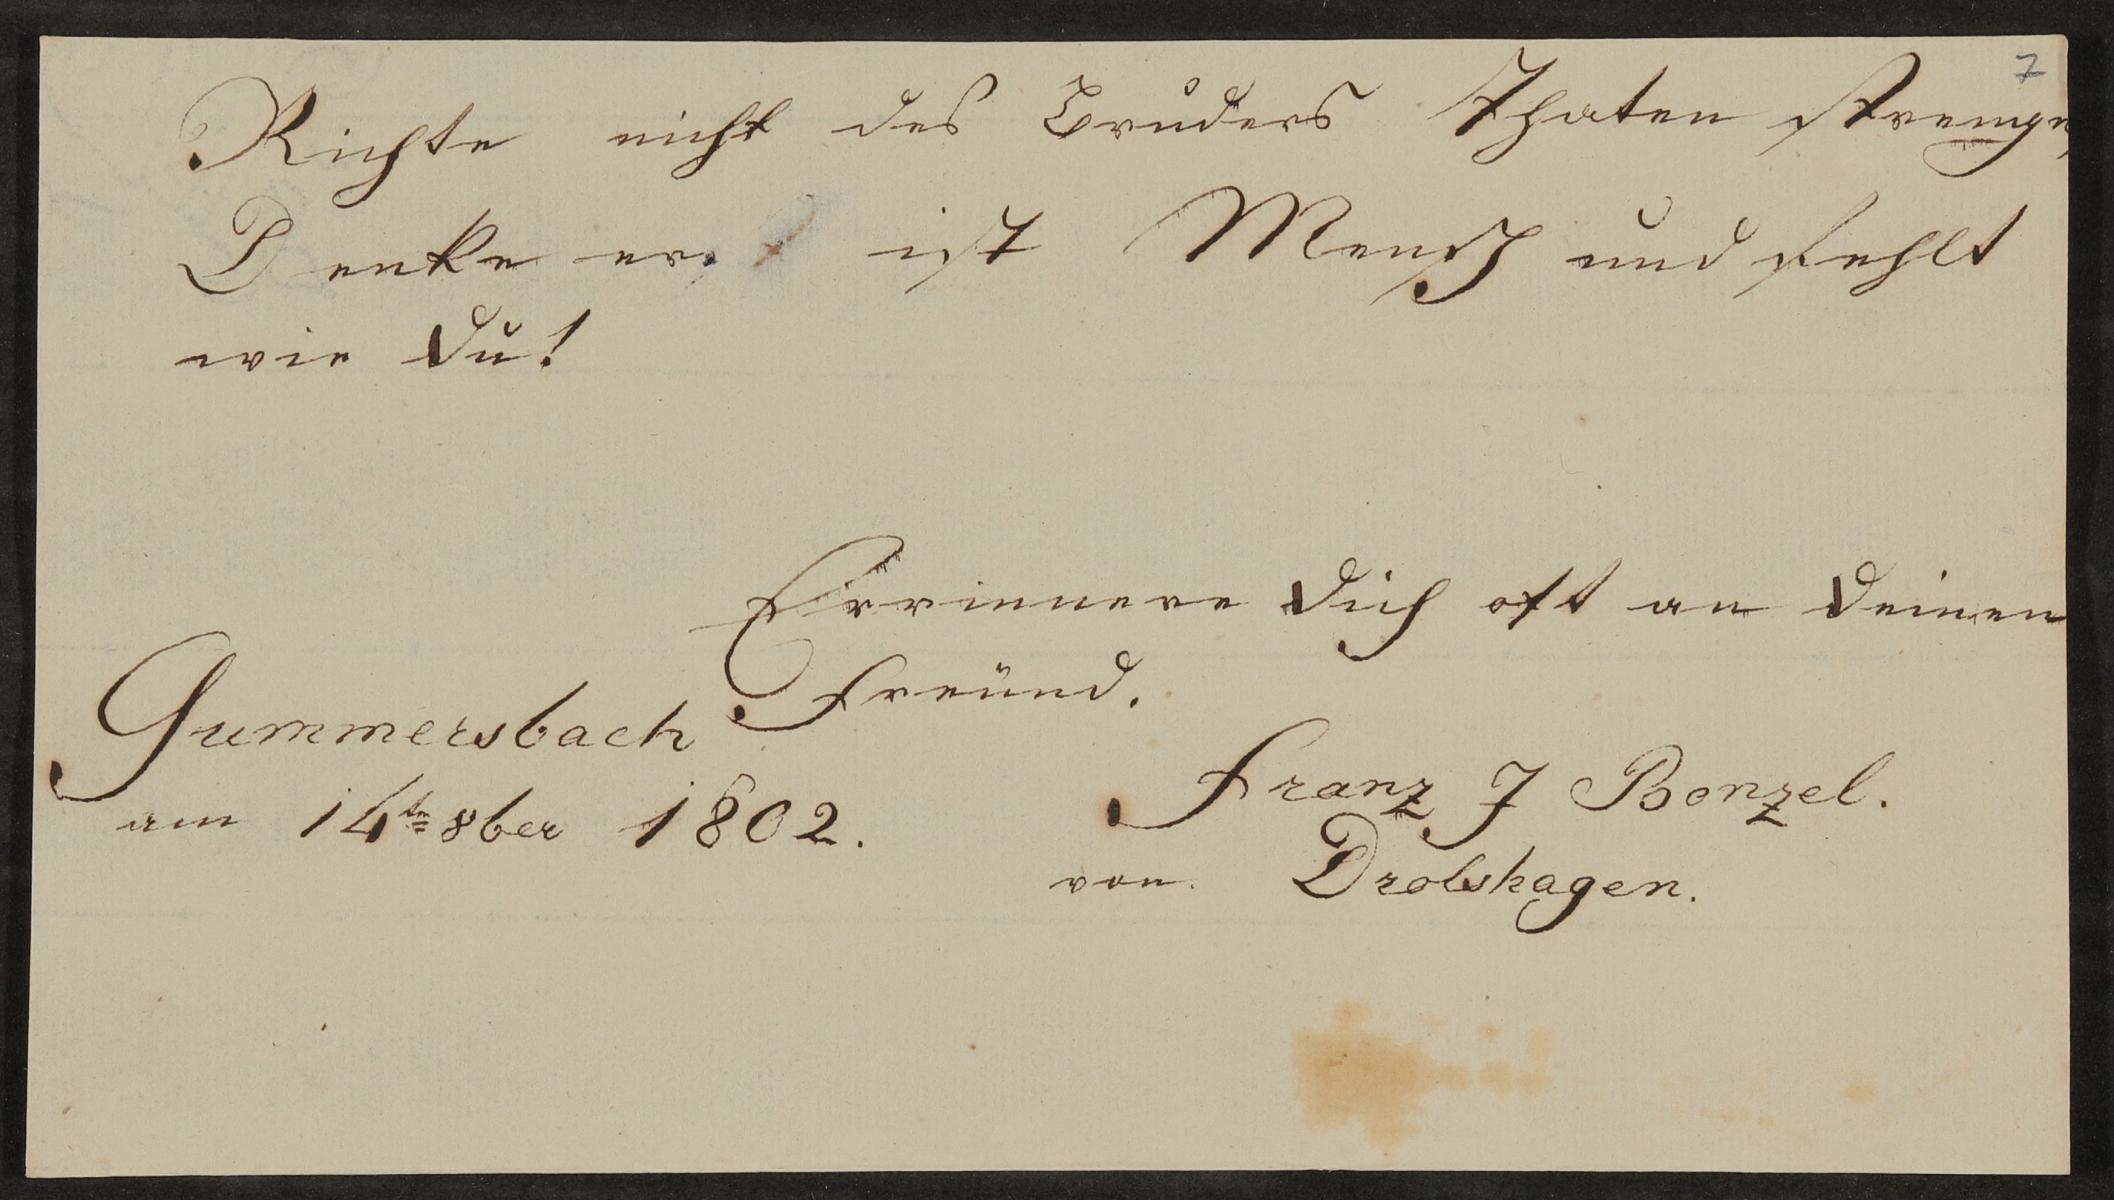 7
Richte nicht des Bruders Thaten strenge,
Denke er ist Mensch und fehlt
wie du!
Errinnere dich oft an deinen
Freünd.
Gummersbach
am 14te 8ber 1802.
Franz J Bonzel.
von Drolshagen.